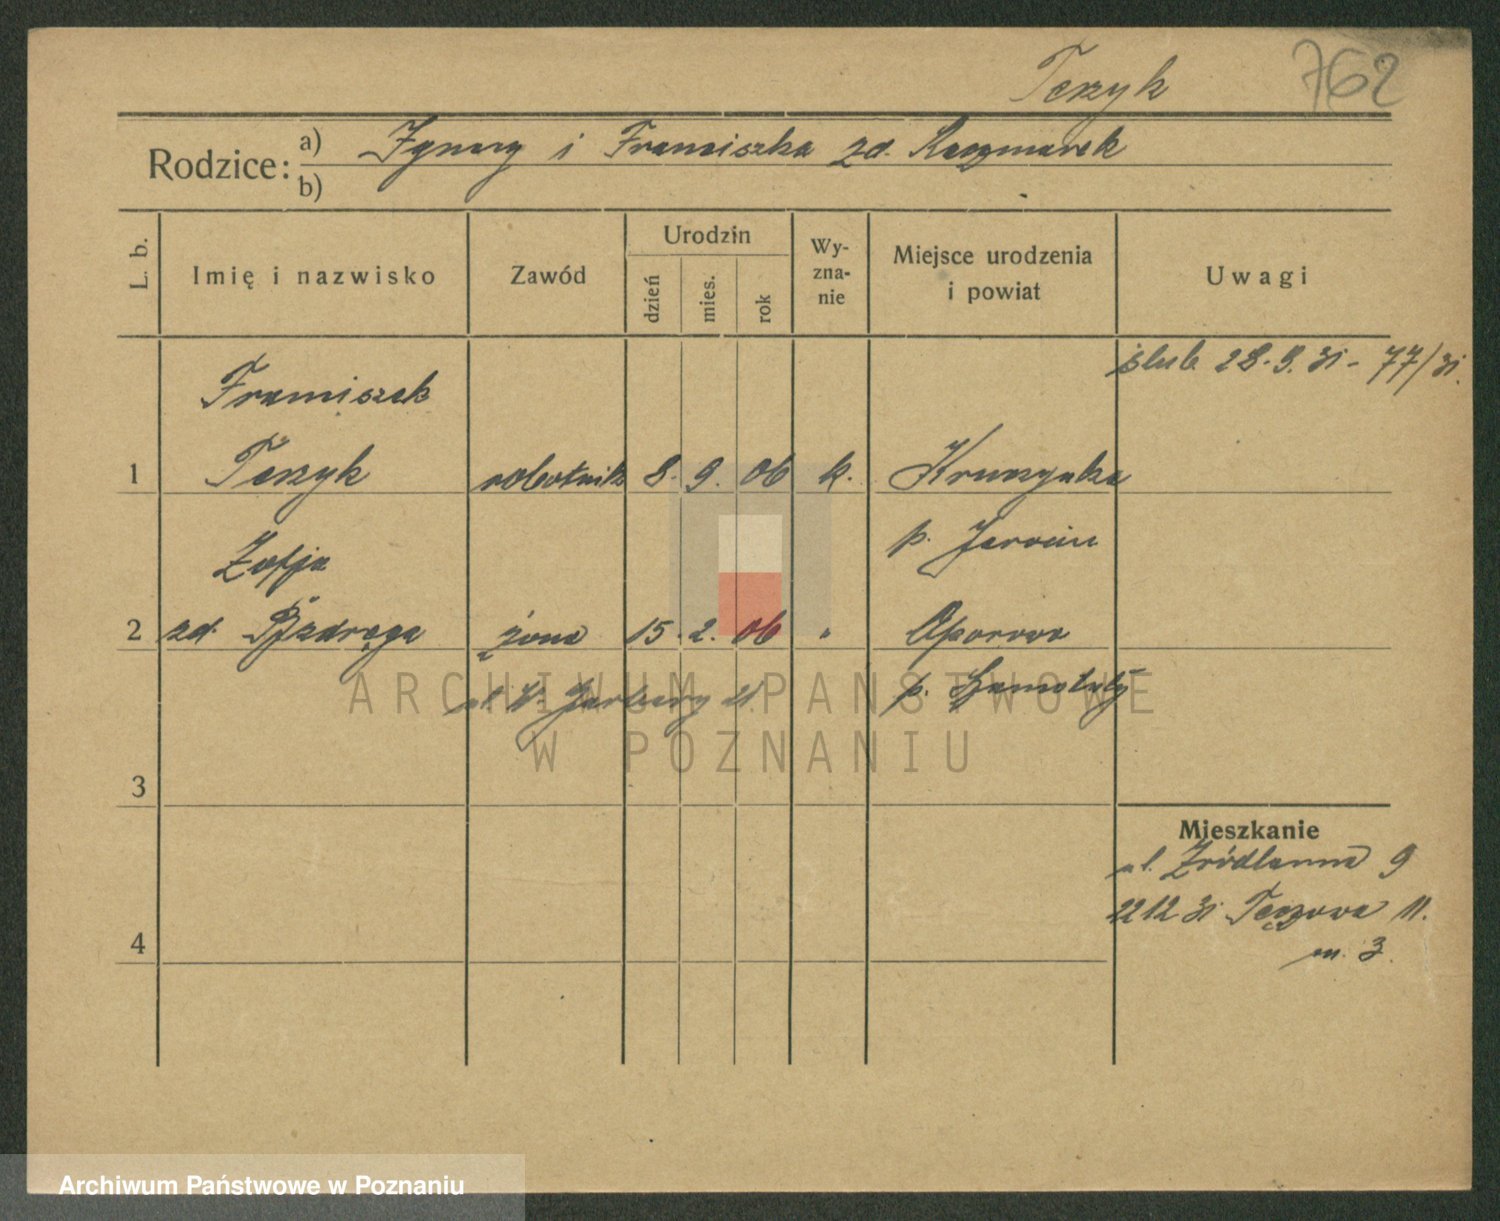 Terzyk 762
Rodzice:
a) Ignacy i Franciszka zd. Kaczmarek
b)
L. b.
Imię i nazwisko
Zawód
Urodzin
dzień
mies.
rok
Wy-
zna-
nie
Miejsce urodzenia
i powiat
Uwagi
ślub 28.9.31 - 77/31.
Franciszek
1 Terzyk robotnik 8. 9. 06 k.
p. Jarocin
Zofja
2 zd. żona 15. 2. 06 "
p. Szamotuły
ul. W. Garbary
3
Mieszkanie
ul. Źródlana 9
22 12 31 Tęczowa 11.
m. 3.
4
ARCHIWUM PAŃSTWOWE
W POZNANIU
Archiwum Państwowe w Poznaniu